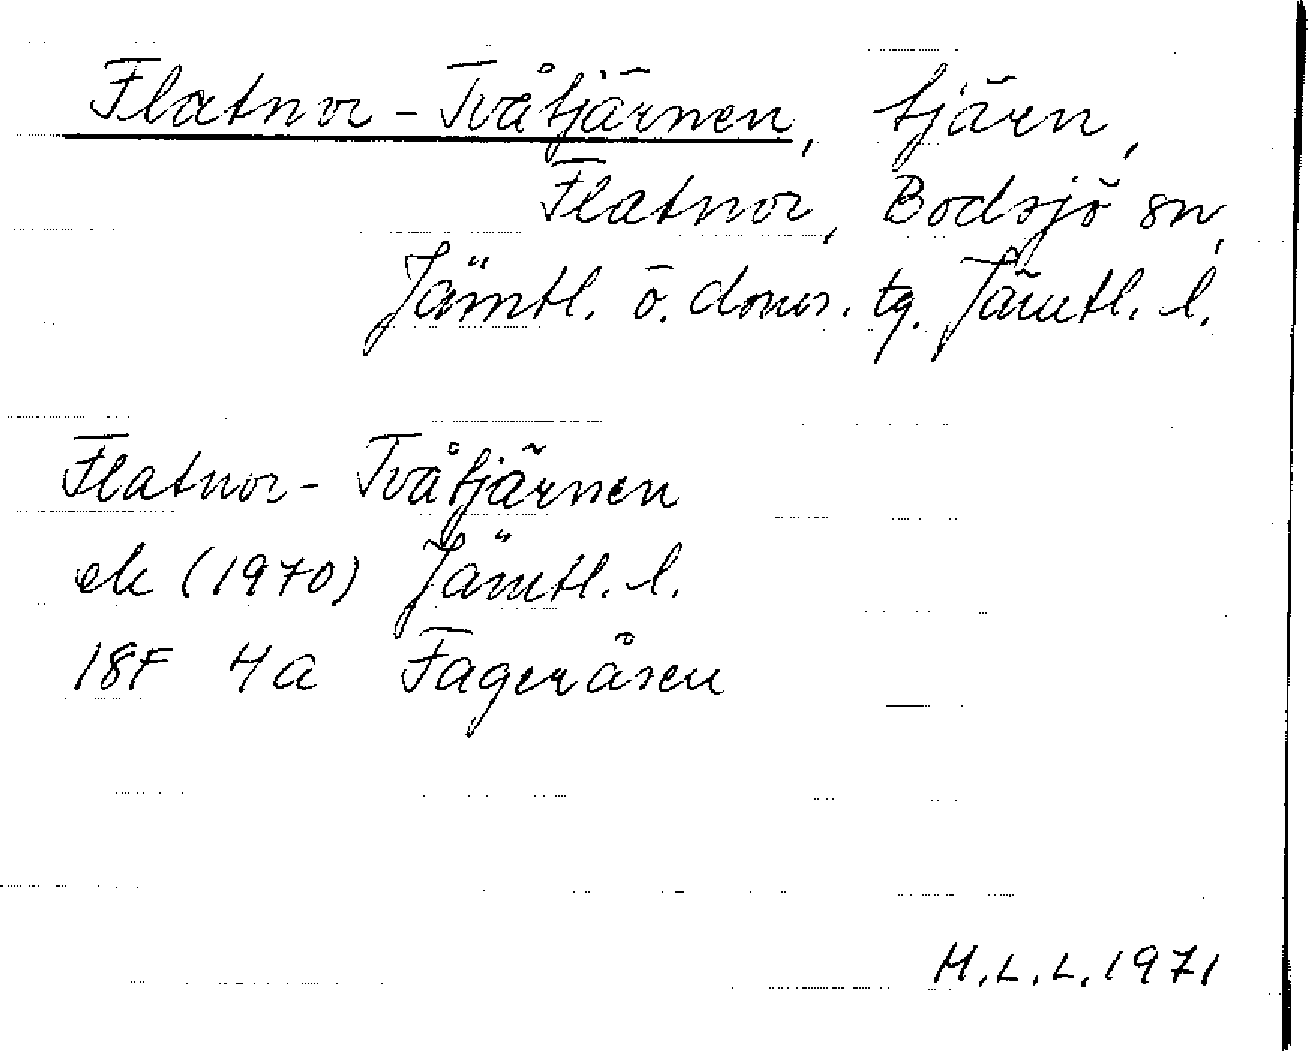 Flatnor-Tvåtjärnen, tjärn,
Flatnor, Bodsjö sn,
Jämtl. ö. doms. tg. Jämtl. l.
Flatnor-Tvåtjärnen
ek (1970) Jämtl. l.
18F 4a Fageråsen
M.L.L. 1971